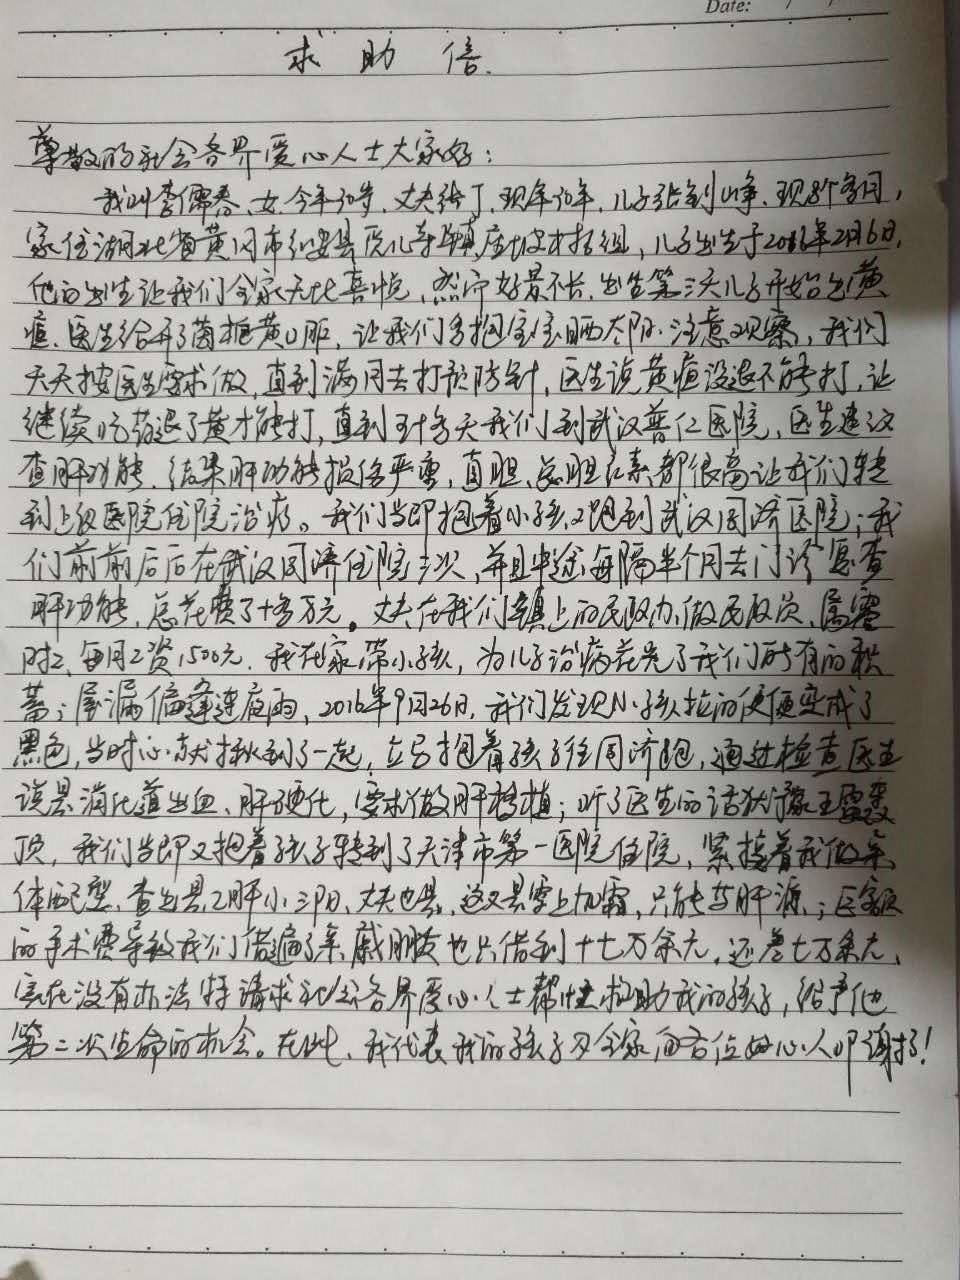 Date: / /
求助信.
尊敬的社会各界爱心人士大家好:
我叫李儒春、女.今年30岁、丈夫张丁.现年30年.儿子张剑峥.现8个多月,
家住湖北省黄冈市红安县 镇 村 组,儿子出生于2016年2月6日,
他的出生让我们全家无比喜悦,然而好景不长.出生第三天儿子开始出黄
疸.医生给开了茵栀黄口服,让我们多抱宝宝晒太阳.注意观察,我们
天天按医生要求做,直到满月去打预防针,医生说黄疸没退不能打,让
继续吃药退了黄才能打,直到五十多天我们到武汉普仁医院,医生建议
查肝功能.结果肝功能损伤严重,直胆、总胆红素都很高让我们转
到上级医院住院治疗。我们当即抱着小孩又跑到武汉同济医院;我
们前前后后在武汉同济住院三次,并且中途每隔半个月去门诊复查
肝功能,总花费了十多万元。丈夫在我们镇上的民政办做民政员,属零
时工、每月工资1500元.我在家带小孩,为儿子治病花完了我们所有的积
蓄;屋漏偏逢连夜雨,2016年9月26日,我们发现小孩拉的便便变成了
黑色,当时心就揪到了一起,立马抱着孩子往同济跑,通过检查医生
说是消化道出血、肝硬化,要求做肝移植;听了医生的话犹豫五雷轰
顶,我们当即又抱着孩子转到了天津市第一医院住院,紧接着我做亲
体配型.查出是乙肝小三阳、丈夫也是.这又是雪上加霜,只能等肝源;巨额
的手术费导致我们借遍了亲戚朋友也只借到十七万余元.还差七万余元,
实在没有办法特请求社会各界爱心人士帮忙救助我的孩子,给予他
第二次生命的机会。在此、我代表我的孩子及全家向各位好心人叩谢了!